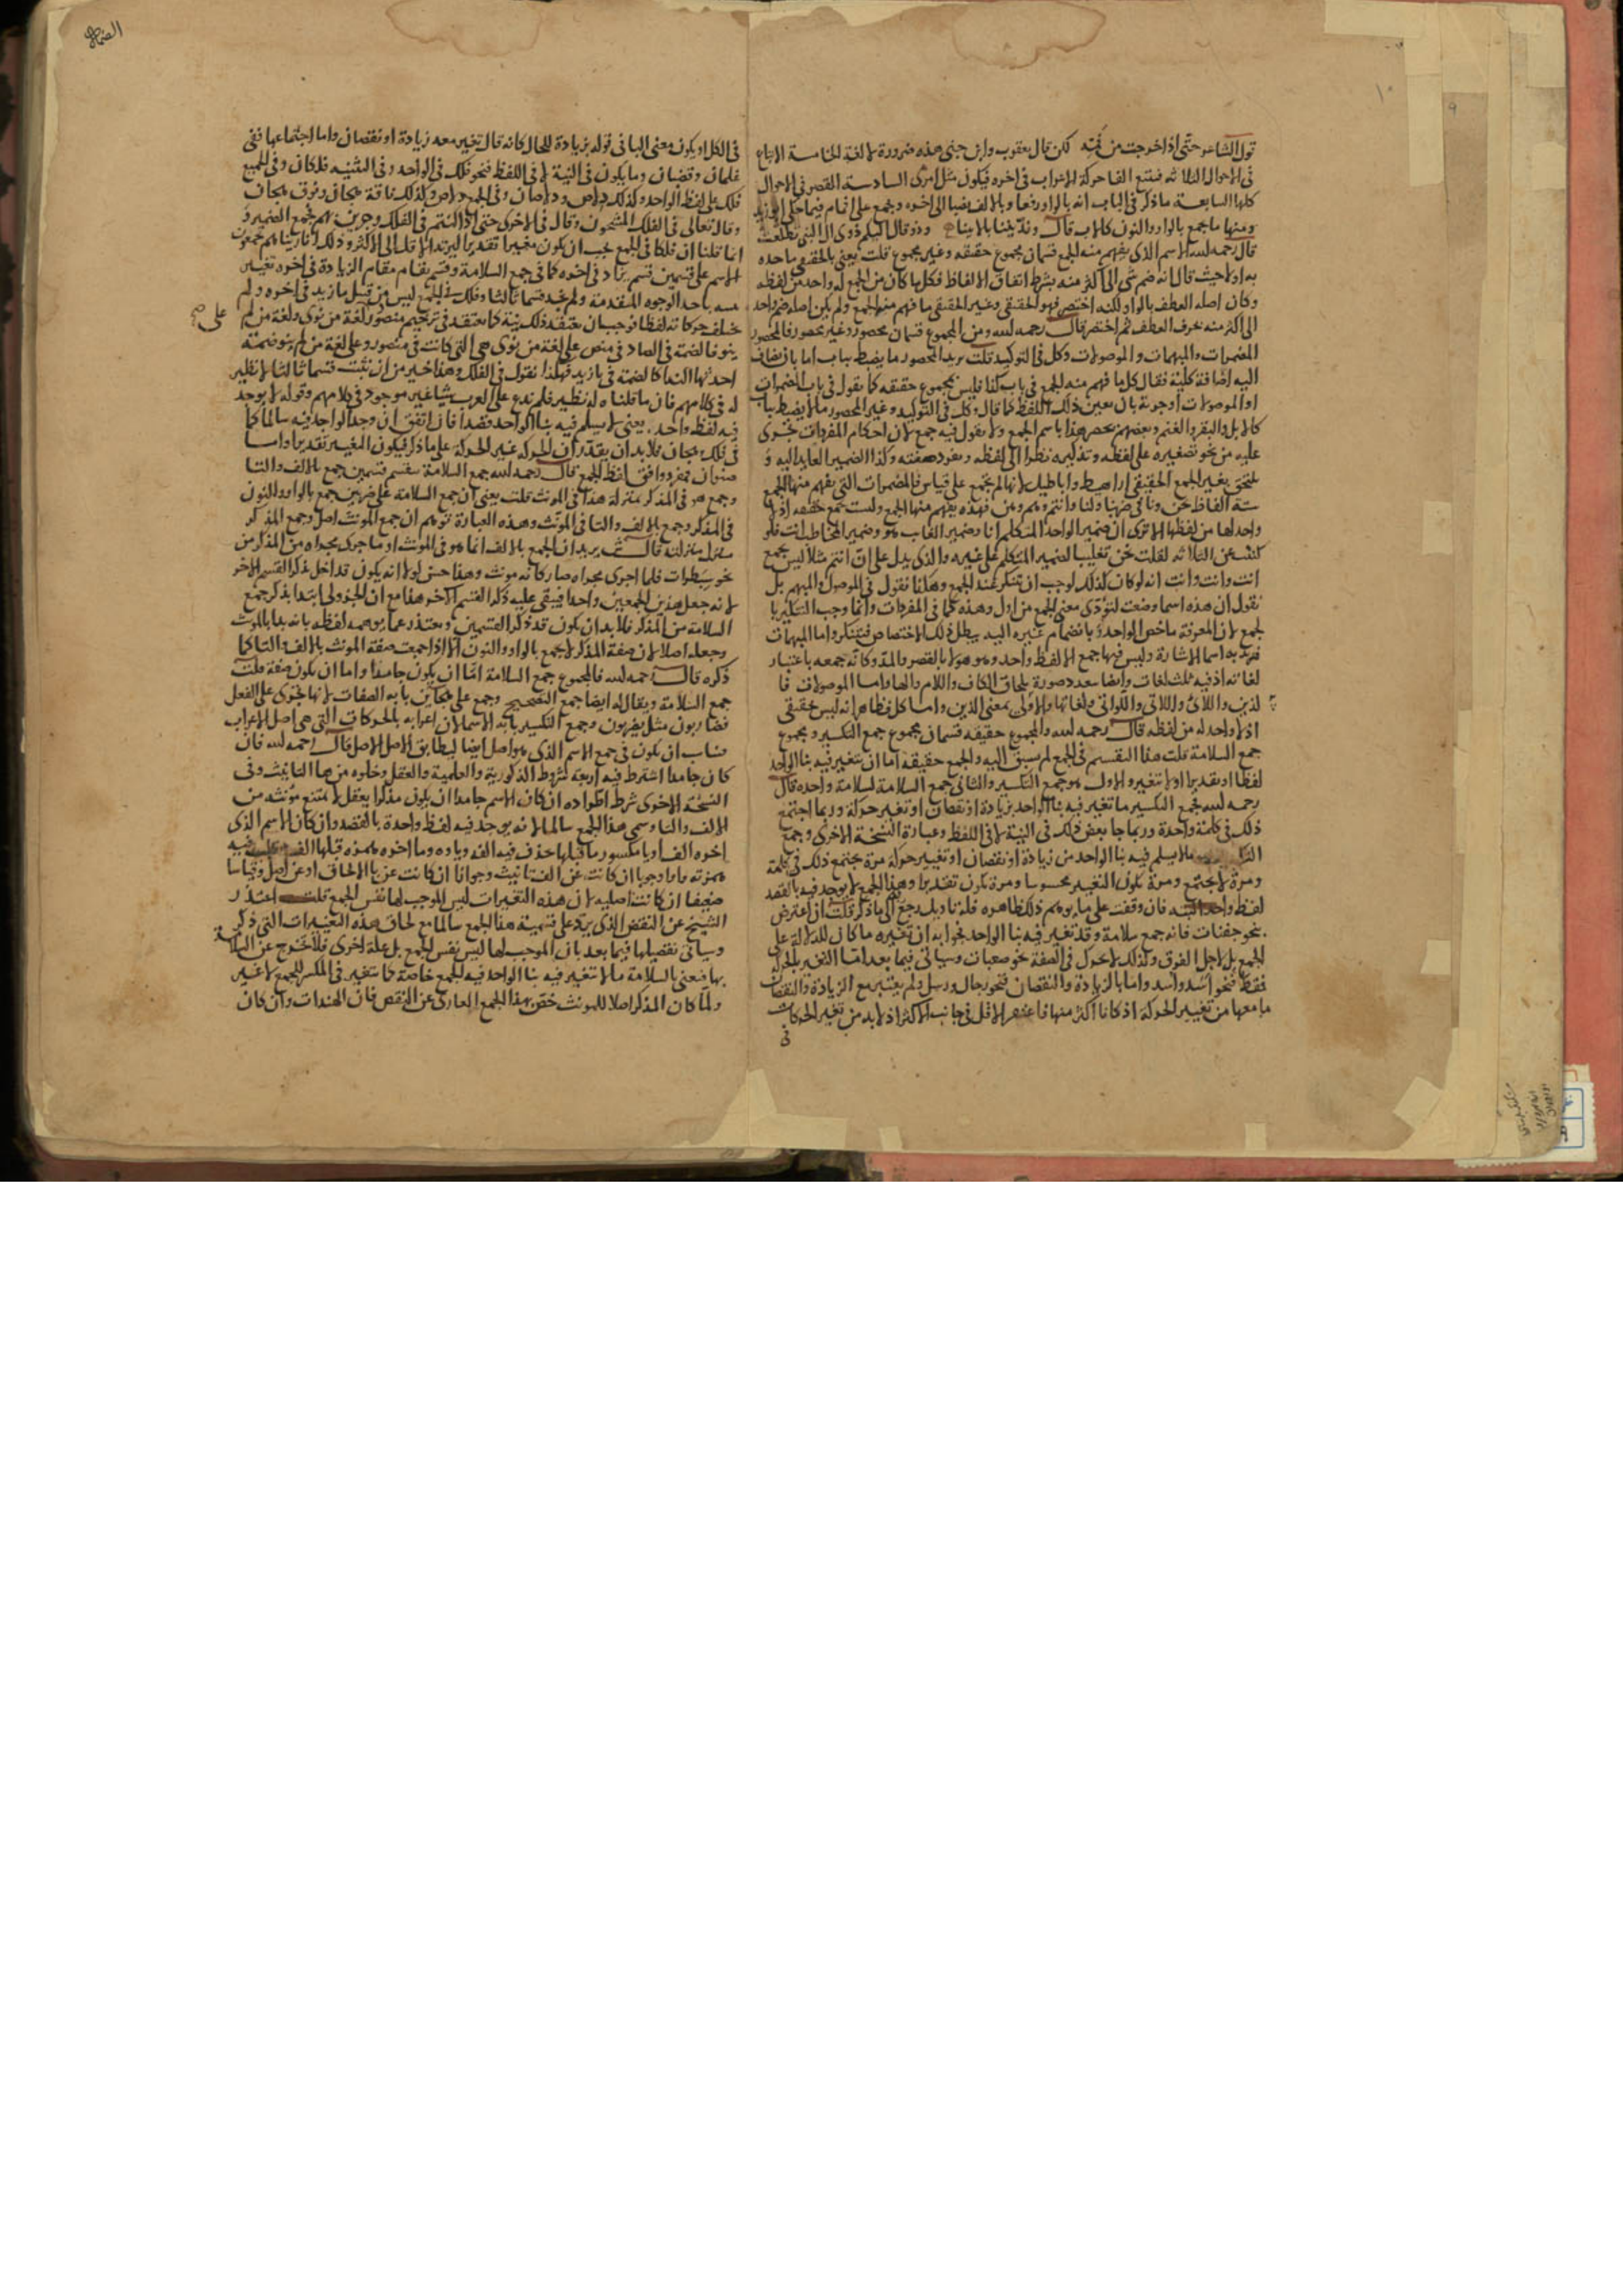 قول الشاعر حتى اذا خرجت من فمّه لكن قال يعقوب وابن جنى هذه ضرورة لا لغة الخامسة الاتباع
فى الاحوال الثلاثه فتتبع الفا حركة الاعراب فى اخره فيكون مثل امرئ السادسة القصر فى الاحوال
كلها السابعة ما ذكر فى الباب انه بالواو رفعا وبالالف نصبا الى اخره وجمع على افمام فيما حكى ابو زيد
ومنها ما جمع بالواو والنون كالاب قال وفدّيننا بالابينا وذو وقال الكيم ذوى ال النبى تطلعت
قال رحمه لله الاسم الذى يفهم منه الجمع قسمان مجموع حقيقه وغير مجموع قلت يعنى بالحقيقى ما حده
به اولا حيث قال انه ضم شى الى اكثر منه بشرط اتفاق الالفاظ فكل ما كان من الجمع له واحد من لفظه
وكان اصله العطف بالواو لكنه اختصر فهو الحقيقى وغير الحقيقى ما فهم منه الجمع ولم يكن اصله ضم واحد
الى اكثر منه بحرف العطف ثم اختصر قال رحمه لله ومن المجموع قسمان محصور وغير محصور فالمحصور
المضمرات والمبهمات والموصولات وكل فى التوكيد قلت يريد المحصور ما يضبط بباب اما بان يضاف
اليه اضافة كلية فقال كل ما فهم منه الجمع فى باب كذا فليس بمجموع حقيقه كما نقول فى باب المضمرات
او الموصولات او جوته بان يعين ذلك اللفظ كما قال وكل فى التوكيد وغير المحصور ما لا يضبط بباب
كالابل والبقر والغنم وبعضهم يحصر هذا باسم الجمع ولا يقول فيه جمع لان احكام المفردات تجرى
عليه من نحو تصغيره على لفظه وتذكيره نظرا الى لفظه ومفرد صفته وكذا الضمير العايد اليه و
يلتحق بغير الجمع الحقيقى اراهيط واباطيل لانها لم يجمع على قياس فالمضمرات التى يفهم منها الجمع
ستة الفاظ نحن ونا فى ضربنا ولنا وانتم وهم وهن فهذه يفهم منها الجمع وليست جمع حقيقه اذ لا
واحد لها من لفظها الا ترى ان ضمير الواحد المتكلم انا وضمير الغايب هو وضمير المخاطب انت فلو
كنت عن الثلاثه لقلت نحن تغليبا لضمير المتكلم على غيره والذى يدل على ان انتم مثلا ليس بجمع
انت وانت وانت انه لو كان كذلك لوجب ان يتنكر عند الجمع وهكذا نقول فى الموصول والمبهم بل
نقول ان هذه اسما وضعت لتؤدى معنى الجمع من اول وهذه كما فى المفردات وانما وجب التنكير با
لجمع لان المعرفة ما خص الواحد وبانضمام غيره اليه يبطل ذلك الاختصاص فيتنكر واما المبهمات
فيريد به اسما الاشارة وليس فيها جمع الا لفظ واحد وهو هولا بالقصر والمد وكانه جمعه باعتبار
لغاته اذ فيه ثلث لغات وايضا بعدد صورة بلحاق الكاف واللام والها واما الموصولات فا
لذين واللائى واللاتى واللواتى ولغاتها والاولى بمعنى الذين واما كل فظاهر انه ليس حقيقى
اذ لا واحد له من لفظه قال رحمه لله والمجموع حقيقه قسمان مجموع جمع التكسير ومجموع
جمع السلامة قلت هذا التقسيم فى الجمع لم يسبق اليه والجمع حقيقه اما ان يتغير فيه بنا الواحد
لفظا او تقديرا او لا يتغير والاول هو جمع التكسير والثانى جمع السلامة لسلامة واحده قال
رحمه لله فجمع التكسير ما تغير فيه بنا الواحد بزيادة او نقصان او تغيير حركة وربما اجتمع
ذلك فى كلمة واحدة وربما جا بعض ذلك فى النية لا فى اللفظ وعبارة النسخة الاخرى وجمع
التكسير ما لا يسلم فيه بنا الواحد من زيادة او نقصان او تغيير حركة مرة يجتمع ذلك فى كلمة
ومرة لا يجتمع ومرة يكون التغيير محسوسا ومرة يكون تقديرا وهذا الجمع لا يوجد فيه بالقصد
لفظ واحد البته فان وقفت على ما يوهم ذلك ظاهره فله تاويل رجع الى ما ذكر قلت ان اعترض
بنحو جفنات فانه جمع سلامة وقد تغير فيه بنا الواحد فجوابه ان تغييره ما كان للدلالة على
الجمع بل لاجل الفرق وكذلك لا تحرك فى الصفة نحو صعبات وسياتى فيما بعد اما التغير بالحركة
فقط فنحو اسَد واسد واما بالزيادة والنقصان فنحو رجال ورسل ولم يعتبر مع الزيادة والنقصان
ما معها من تغيير الحركة اذ كانا اكثر منها فاغتفر الاقل فى جانب الاكثر اذ لا بد من تغير الحركات
فى
الضمة
فى الكل او يكون معنى البا فى قوله بزيادة للحال كانه قال تغيير معه زيادة او نقصان واما اجتماعها ففى
غلمان وقضبان وما يكون فى النية لا فى اللفظ فنحو فلك فى الواحد وفى التثنيه فلكان وفى الجميع
فلك على لفظ الواحد وكذلك دلاص ودلاصان وفى الجمع دلاص وكذلك ناقة هجان ونوق هجان
وقال تعالى فى الفلك المشحون وقال فى الاخرى حتى اذا كنتم فى الفلك وجرين بهم بجمع الضمير و
انما قلنا ان فلكا فى الجمع يجب ان يكون مغيرا تقديرا ليرتد الاقل الى الاكثر وذلك انا رايناهم يجمعون
الاسم على قسمين قسم يزاد فى اخره كما فى جمع السلامة وقسم يقام مقام الزيادة فى اخره تغيير
بنيته باحد الوجوه المتقدمة ولم نجد قسما ثالثا وفلك فى الجمع ليس من قبيل ما زيد فى اخره ولم
يختلف حركاته لفظا فوجب ان يعتقد ذلك نية كما يعتقد فى ترخيم منصور لغة من نوى ولغة من لم على صح
ينو فالضمة فى الصاد فى منص على لغة من نوى هى التى كانت فى منصور وعلى لغة من لم ينو ضمة
احدثها الندا كالضمة فى يا زيد فهكذا نقول فى الفلك وهذا خير من ان نثبت قسما ثالثا لا نظير
له فى كلامهم فان ما قلناه له نظير فلم ندع على العرب شيا غير موجود فى كلامهم وقوله لا يوجد
فيه لفظ واحد يعنى لا يسلم فيه بنا الواحد قصدا فان اتفق ان وجد الواحد فيه سالما كما
فى فلك وهجان فلا بد ان يقدر ان الحركه غير الحركة على ما ذكر فيكون التغيير تقديرا واما
صنوان فمفرد وافق لفظ الجمع قال رحمه لله جمع السلامة ينقسم قسمين جمع بالالف والتا
وجمع هو فى المذكر بمنزلة هذا فى المونث قلت يعنى ان جمع السلامة على ضربين جمع بالواو والنون
فى المذكر وجمع بالالف والتا فى المونث وهذه العبارة توهم ان جمع المونث اصل وجمع المذكر
منزل منزلته قال ش يريد ان الجمع بالالف انما هو فى المونث او ما جرى مجراه من المذكر من
نحو سبطرات فلما اجرى مجراه صار كانه مونث وهذا حسن لولا انه يكون قد اخل بذكر القسم الاخر
لانه جعل هذين الجمعين واحدا فيبقى عليه ذكر القسم الاخر هذا مع ان الجزولى ابتدا بذكر جمع
السلامة من المذكر فلا بد ان يكون قد ذكر القسمين ويعتذر عما يوهمه لفظه بانه بدا بالمونث
وجعله اصلا لان صفة المذكر لا يجمع بالواو والنون الا اذا جمعت صفة المونث بالالف والتا كما
ذكره قال رحمه لله فالمجموع جمع السلامة امّا ان يكون جامدا واما ان يكون صفة قلت
جمع السلامة ويقال له ايضا جمع التصحيح وجمع على هجاين بابه الصفات لانها تجرى على الفعل
فضاربون مثل يضربون وجمع التكسير بابه الاسما لان اعرابه بالحركات التى هى اصل الاعراب
فناسب ان يكون فى جمع الاسم الذى هو اصل ايضا ليطابق الاصل الاصل قال رحمه لله فان
كان جامدا اشترط فيه اربعة شروط الذكورية والعلمية والعقل وخلوه من ها التانيث وفى
النسخة الاخرى شرط اطراده ان كان الاسم جامدا ان يكون مذكرا يعقل لا يمتنع مونثه من
الالف والتا وسمى هذا الجمع سالما لانه يوجد فيه لفظ واحدة بالقصد وان كان الاسم الذى
اخره الف او يا مكسور ما قبلها حذف فيه الفه وياوه وما اخره همزه قبلها الف فيه
همزته واوا وجوبا ان كانت عن الف تانيث وجوازا ان كانت عن يا الالحاق او عن اصل وقياسا
ضعيفا ان كانت اصليه لان هذه التغييرات ليس الموجب لها نفس الجمع قلت اعتذر
الشيخ عن النقض الذى يرد على تسمية هذا الجمع سالما مع لحاق هذه التغييرات التى ذكر
وسياتى تفصيلها فيما بعد بان الموجب لها ليس نفس الجمع بل علة اخرى فلا تخرج عن السلامة
بها فيعنى بالسلامة ما لا يتغير فيه بنا الواحد فيه للجمع خاصة كما يتغير فى المكسر للجمع لا غير
ولما كان المذكر اصلا للمونث خص بهذا الجمع العارى عن النقص فان الهندات وان كان